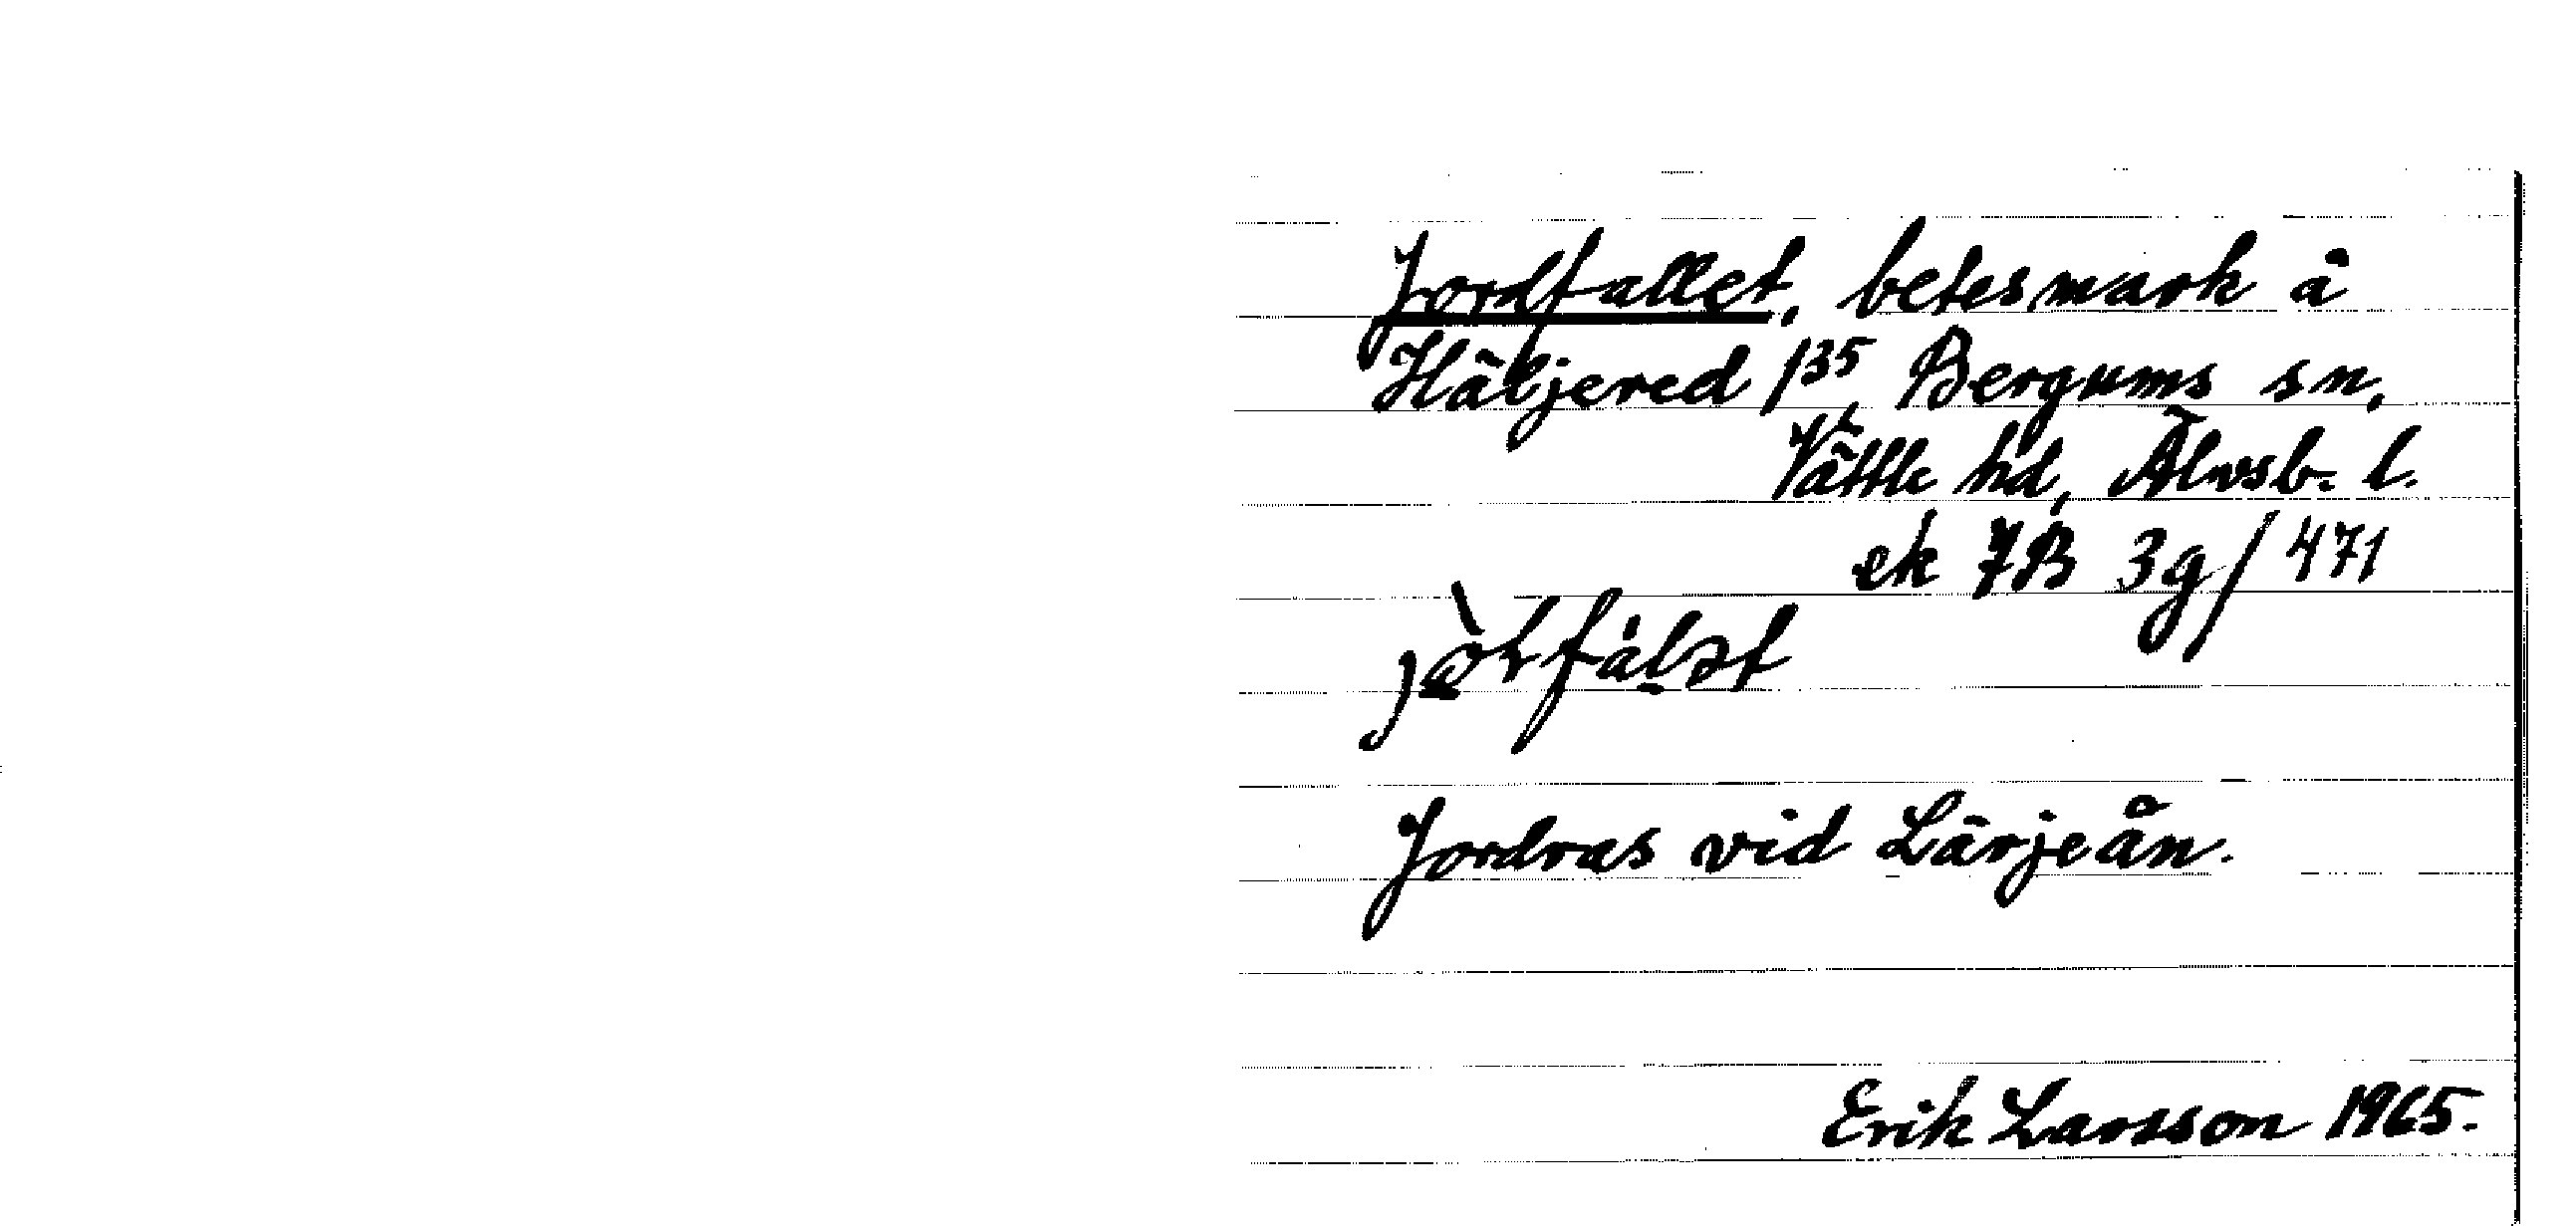 Jordfallet, betesmark å
Häljered 1³⁵, Bergums sn,
Vättle hd, Älvsb. l.
ek 7B 3g/471
Jordras vid Lärjeån.
Erik Larsson 1965.